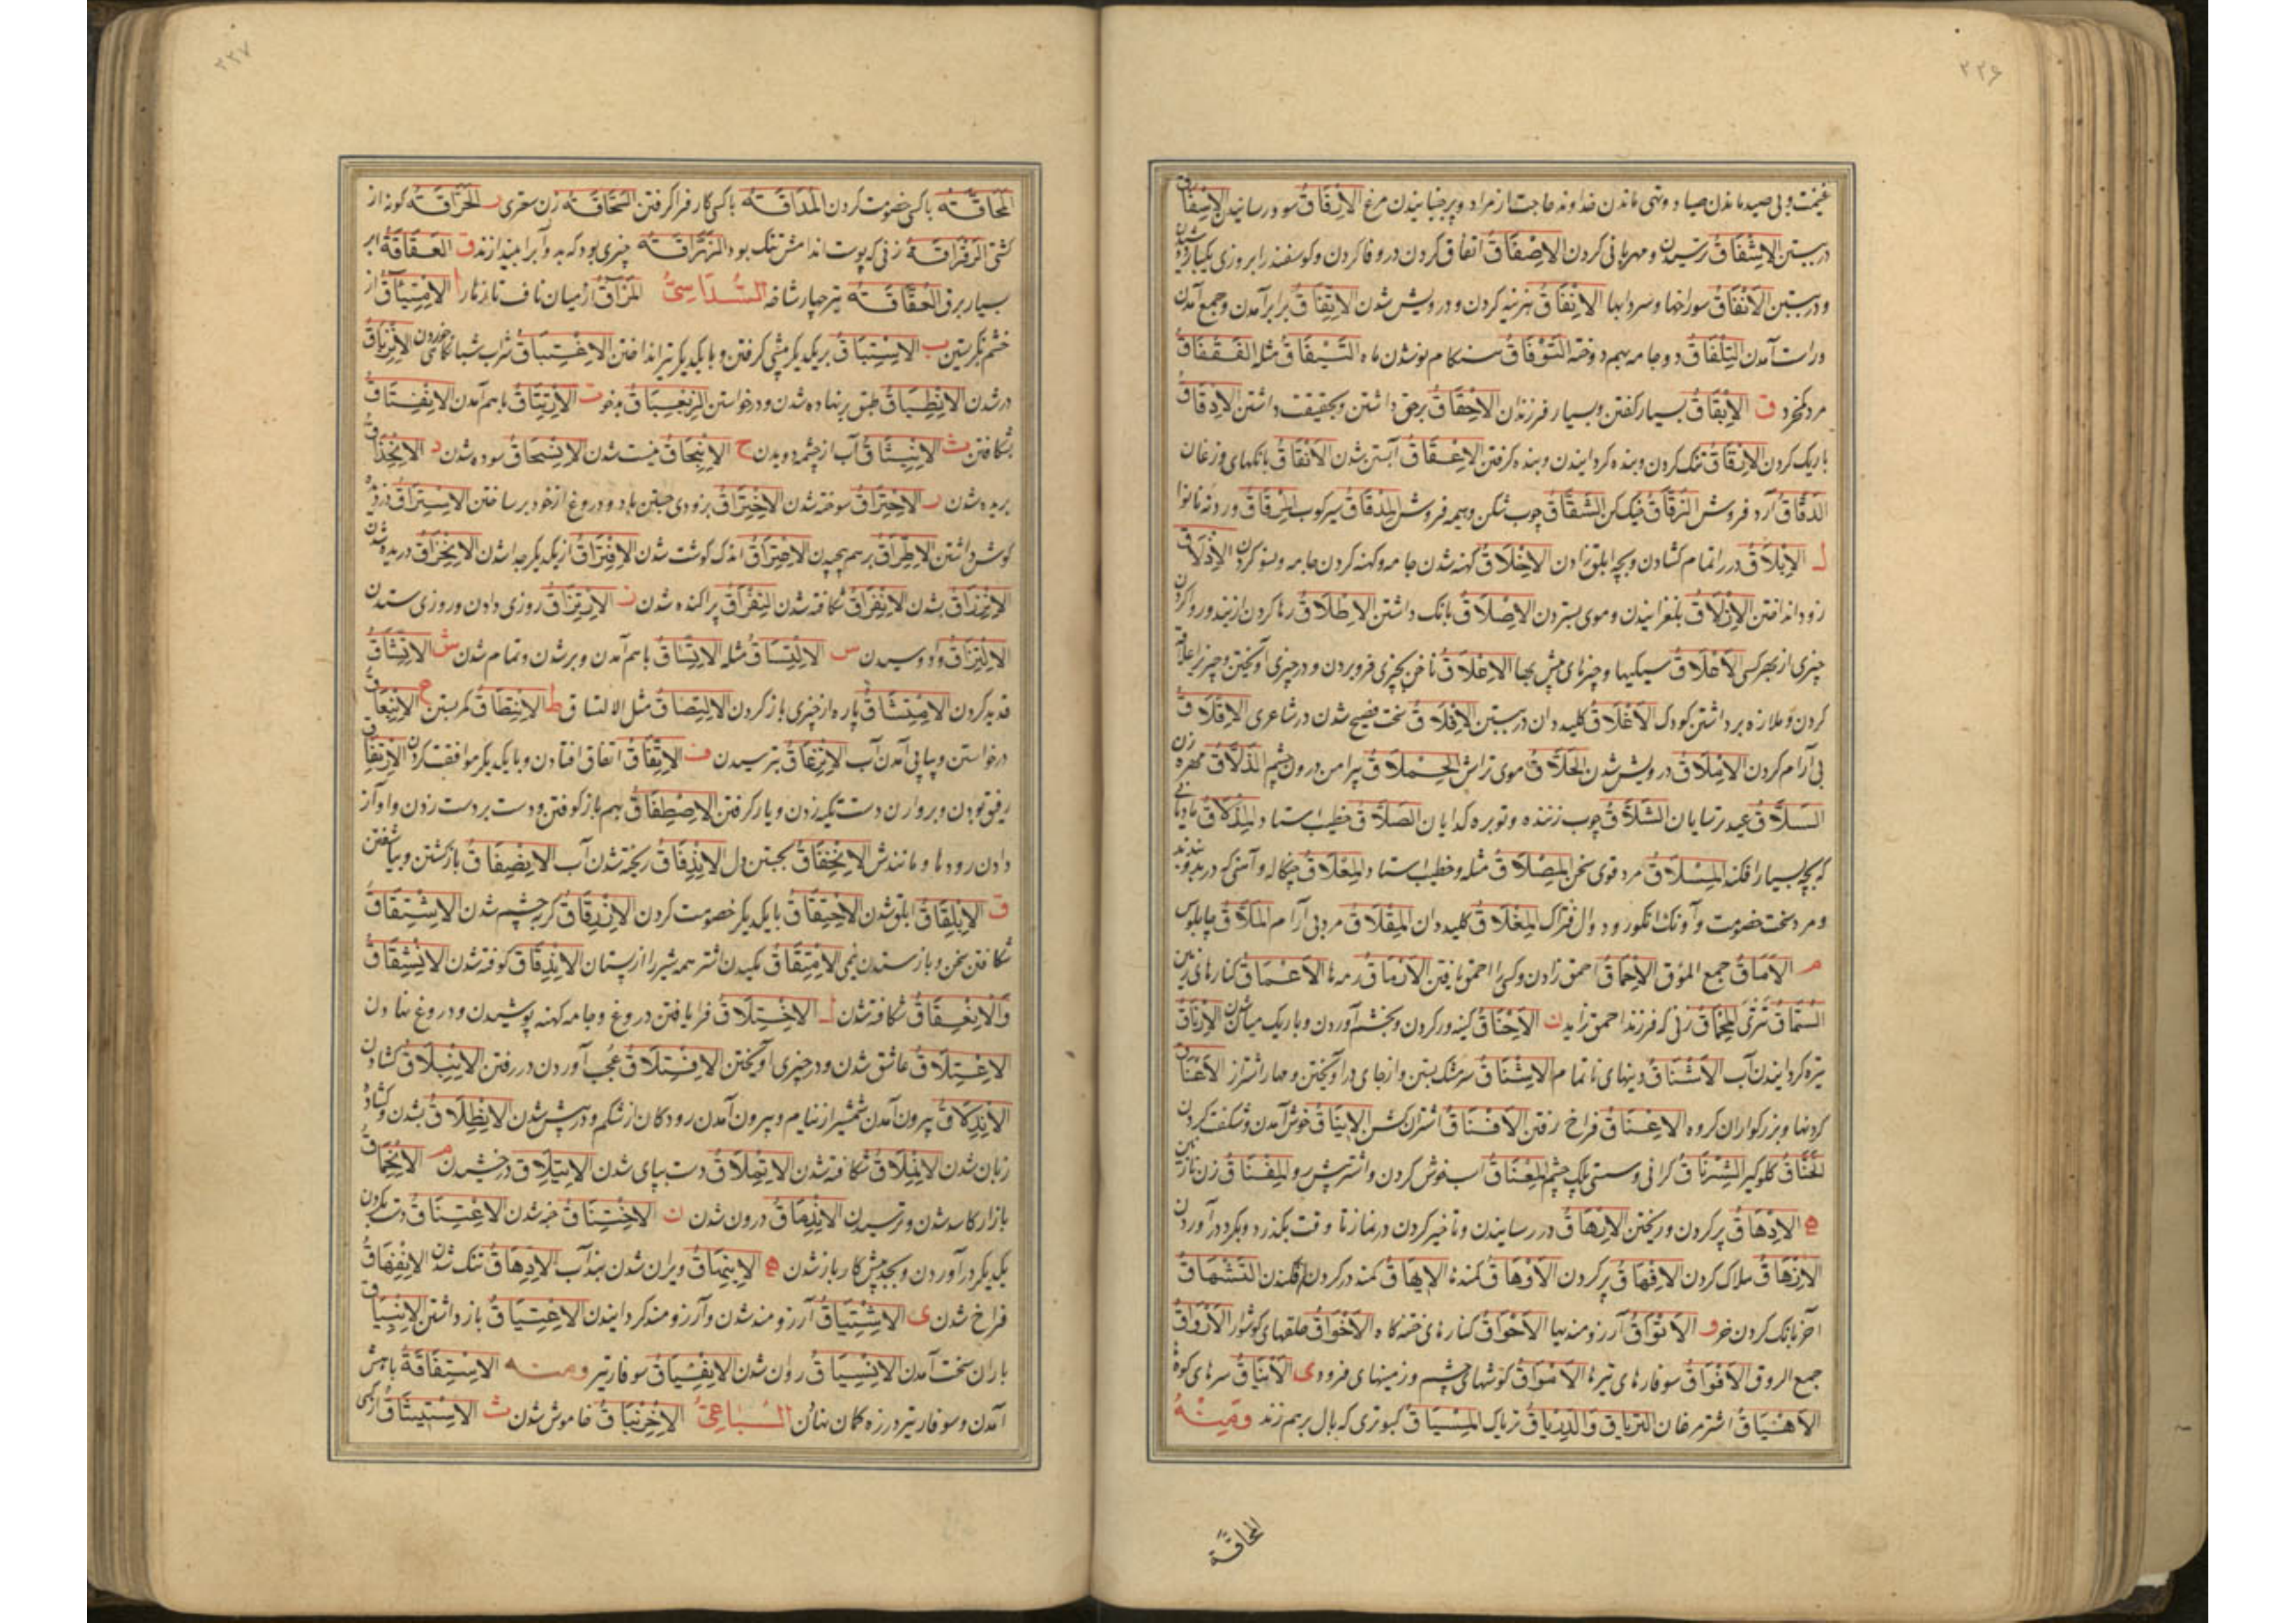 ۲۲۶
غنیمت و بی صید ماندن صیاد و تهی ماندن خداوند حاجت از مراد و پر جنبانیدن مرغ الاِرْفَاقُ سود رسانیدن الاِسْفَاقُ
در بستن الاِشْفَاقُ ترسیدن و مهربانی کردن الاِصْفَاقُ اتفاق کردن در وفا کردن و گوسفند را بروزی یکبار دوشیدن
و در بستن الاَنْفَاقُ سوراخها و سردابها الاِنْفَاقُ هزینه کردن و درویش شدن الاِتِّفَاقُ برابر آمدن و جمع آمدن
و راست آمدن التِّلْفَاقُ دو جامه بهم دوخته التَّوْفَاقُ هنگام نو شدن ماه التِّیفَاقُ مثله الفَقْفَاقُ
مرد کم‌خرد ق الاِبْقَاقُ بسیار گفتن و بسیار فرزندان الاِحْقَاقُ بر حق داشتن و بحقیقت داشتن الاِدْقَاقُ
باریک کردن الاِرْقَاقُ تنک کردن و بنده گردانیدن و بنده گرفتن الاِعْقَاقُ آبستن شدن الاَنْقَاقُ بانگهای وزغان
الدَقَّاقُ آرد فروش الزَقَّاقُ خیک کن الشَقَّاقُ چوب شکن و هیمه فروش المِدْقَاقُ سیر کوب المِرْقَاقُ وردنه نانوا
ل الاِبْلَاقُ در را تمام گشادن و بچه ابلق زادن الاِخْلَاقُ کهنه شدن جامه و کهنه کردن جامه و بسو کردن الاِذْلَاقُ
زود انداختن الاِزْلَاقُ بلغزانیدن و موی بستردن الاِصْلَاقُ بانگ داشتن الاِطْلَاقُ رها کردن از بند و روا کردن
چیزی از بهر کسی الاَعْلَاقُ سیکیها و چیزهای بیش بها الاِعْلَاقُ ناخن بچیزی فرو بردن و در چیزی آویختن و چیز را علاقه
کردن و ملازه برداشتن کودک الاَغْلَاقُ کلیددان در بستن الاِفْلَاقُ سخت فصیح شدن در شاعری الاِقْلَاقُ
بی آرام کردن الاِمْلَاقُ درویش شدن الحَلَّاقُ موی تراش الحِمْلَاقُ پیرامن درون چشم الدَلَّاقُ مهره زن
السَلَّاقُ عید ترسایان الشَلَّاقُ چوب زننده و توبره گدایان الصَلَّاقُ خطیب استاد المِذْلَاقُ مادیانی
که بچه بسیار افکند المِسْلَاقُ مرد قوی سخن المِصْلَاقُ مثله و خطیب استاد المِعْلَاقُ چنگاله و آهنی که در بدو بندند
و مرد سخت خصومت و آونگ انگور و دوال فتراک المِغْلَاقُ کلیددان المِقْلَاقُ مرد بی آرام المَلَّاقُ چاپلوس
م الاَمَاقُ جمع المؤق الاِحْمَاقُ احمق زادن و کسی را احمق یافتن الاَرْمَاقُ رمه‌ها الاَعْمَاقُ کنارهای زمین
السُّمَّاقُ تتری المِحْمَاقُ زنی که فرزند احمق زاید ن الاِحْنَاقُ کینه‌ور کردن و بخشم آوردن و باریک میان شدن الاِرْنَاقُ
تیره گردانیدن آب الاَشْنَاقُ دیتهای ناتمام الاِشْنَاقُ سر مشک بستن و از جای در آویختن و مهار اشتر از الاَعْنَاقُ
گردنها و بزرگواران گروه الاِعْنَاقُ فراخ رفتن الاَفْنَاقُ اشتران گشن الاِینَاقُ خوش آمدن و شگفت کردن
الخَنَّاقُ گلوگیر الشِّرْنَاقُ گرانی و سستی پلک چشم المِعْنَاقُ اسب خوش گردن و اشتر پیش رو المِفْنَاقُ زن نازنین
ه الاِدْهَاقُ پر کردن و ریختن الاِرْهَاقُ در رسانیدن و تأخیر کردن در نماز تا وقت بگذرد و بگرد درآوردن
الاِزْهَاقُ هلاک کردن الاِفْهَاقُ پر کردن الاَوْهَاقُ کمندها الاِیهَاقُ کمند در گردن افکندن التَشْهَاقُ
آخر بانگ کردن خر و الاَتْوَاقُ آرزومندیها الاَحْوَاقُ کنارهای ختنه گاه الاَخْوَاقُ حلقهای گوشوار الاَرْوَاقُ
جمع الروق الاَفْوَاقُ سوفارهای تیرها الاَمْوَاقُ گوشهای چشم و زمینهای فرود ی الاَنْیَاقُ سرهای کوه
الاَهْیَاقُ اشترمرغان التِریَاقُ وَالدِریَاقُ تریاک المِسْیَاقُ کبوتری که بال برهم زند وَمِنْهُ
المحاقّة
۲۲۷
المُحَاقَّةُ با کسی خصومت کردن المُدَاقَّةُ با کسی کار فرا گرفتن السَحَّاقَةُ زن سعتری ر الحَرَّاقَةُ گونه از
کشتی الرَقْرَاقَةُ زنی که پوست اندامش تنک بود الزَرَّاقَةُ چیزی بود که بدو آب را بیندازند ق العَقَّاقَةُ ابر
بسیار برق العُقَّاقَةُ تیر چهار شاخه السُّدَاسِیُّ المَرَاقُّ از میان ناف تا زهار ا الاِمْتِیَاقُ از
خشم نگریستن ب الاِسْتِبَاقُ بر یکدیگر پیشی گرفتن و با یکدیگر تیر انداختن الاِغْتِبَاقُ شراب شبانگاهی خوردن الاِنْزِبَاقُ
در شدن الاِنْطِبَاقُ طبق برنهاده شدن و درخواستن الزِبْعِبَاقُ بدخو ت الاِرْتِتَاقُ باهم آمدن الاِنْفِتَاقُ
شکافتن ث الاِنْبِثَاقُ آب از چشمه دویدن ح الاِمْحَاقُ نیست شدن الاِنْسِحَاقُ سوده شدن ذ الاِنْخِذَاقُ
بریده شدن ر الاِحْتِرَاقُ سوخته شدن الاِخْتِرَاقُ بزودی جستن باد و دروغ از خود بر ساختن الاِسْتِرَاقُ دزدیده
گوش داشتن الاِطِّرَاقُ برهم پیچیدن الاِعْتِرَاقُ اندک گوشت شدن الاِفْتِرَاقُ از یکدیگر جدا شدن الاِنْخِرَاقُ دریده شدن
الاِنْزِرَاقُ بشدن الاِنْفِرَاقُ شکافته شدن التِفْرَاقُ پراکنده شدن ز الاِرْتِزَاقُ روزی دادن و روزی ستدن
الاِلْتِزَاقُ وادوسیدن س الاِلْتِسَاقُ مثله الاِتِّسَاقُ باهم آمدن و بر شدن و تمام شدن ش الاِتِّشَاقُ
قدید کردن الاِمْتِشَاقُ پاره از چیزی باز کردن الاِلْتِصَاقُ مثل الالتساق ط الاِنْتِطَاقُ کمر بستن ع الاِنْبِعَاقُ
درخواستن و پیاپی آمدن آب الاِنْزِعَاقُ بترسیدن ف الاِتِّفَاقُ اتفاق افتادن و با یکدیگر موافقت کردن الاِرْتِفَاقُ
رفیق بودن و بر وارن دست تکیه زدن و یار گرفتن الاِصْطِفَاقُ بهم باز کوفتن و دست بر دست زدن و آواز
دادن رودها و مانندش الاِخْتِفَاقُ بجستن دل الاِنْدِفَاقُ ریخته شدن آب الاِنْصِفَاقُ بازگشتن و بیاشفتن
ق الاِبْلِقَاقُ ابلق شدن الاِحْتِقَاقُ با یکدیگر خصومت کردن الاِزْرِقَاقُ گربه چشم شدن الاِشْتِقَاقُ
شکافتن سخن و باز ستدن نیمی الاِمْتِقَاقُ مکیدن اشتر همه شیر را از پستان الاِنْدِقَاقُ کوفته شدن الاِنْشِقَاقُ
وَالاِنْعِقَاقُ شکافته شدن ل الاِخْتِلَاقُ فرا بافتن دروغ و جامه کهنه پوشیدن و دروغ نهادن
الاِعْتِلَاقُ عاشق شدن و در چیزی آویختن الاِفْتِلَاقُ عجب آوردن در رفتن الاِنْبِلَاقُ گشادن
الاِنْدِلَاقُ بیرون آمدن شمشیر از نیام و بیرون آمدن رودگان از شکم و در پیش شدن الاِنْطِلَاقُ بشدن و گشاده
زبان شدن الاِنْفِلَاقُ شکافته شدن الاِتِّهْلَاقُ دست بپای شدن الاِیتِلَاقُ درخشیدن م الاِنْحِمَاقُ
بازار کاسد شدن و ترسیدن الاِنْدِمَاقُ درون شدن ن الاِخْتِنَاقُ خبه شدن الاِعْتِنَاقُ دست بگردن
یکدیگر درآوردن و بجد پیش کار باز شدن ه الاِنْبِهَاقُ ویران شدن بند آب الاِدِّهَاقُ تنک شدن الاِنْفِهَاقُ
فراخ شدن ی الاِشْتِیَاقُ آرزومند شدن و آرزومند گردانیدن الاِعْتِیَاقُ باز داشتن الاِنْبِیَاقُ
باران سخت آمدن الاِنْسِیَاقُ روان شدن الاِنْفِیَاقُ سوفار تیر ومنه الاِسْتِفَاقَةُ باهش
آمدن و سوفار تیر در زه کمان نهادن السُّبَاعِیُّ الاِخْرِنْبَاقُ خاموش شدن ث الاِسْتِیثَاقُ از کسی